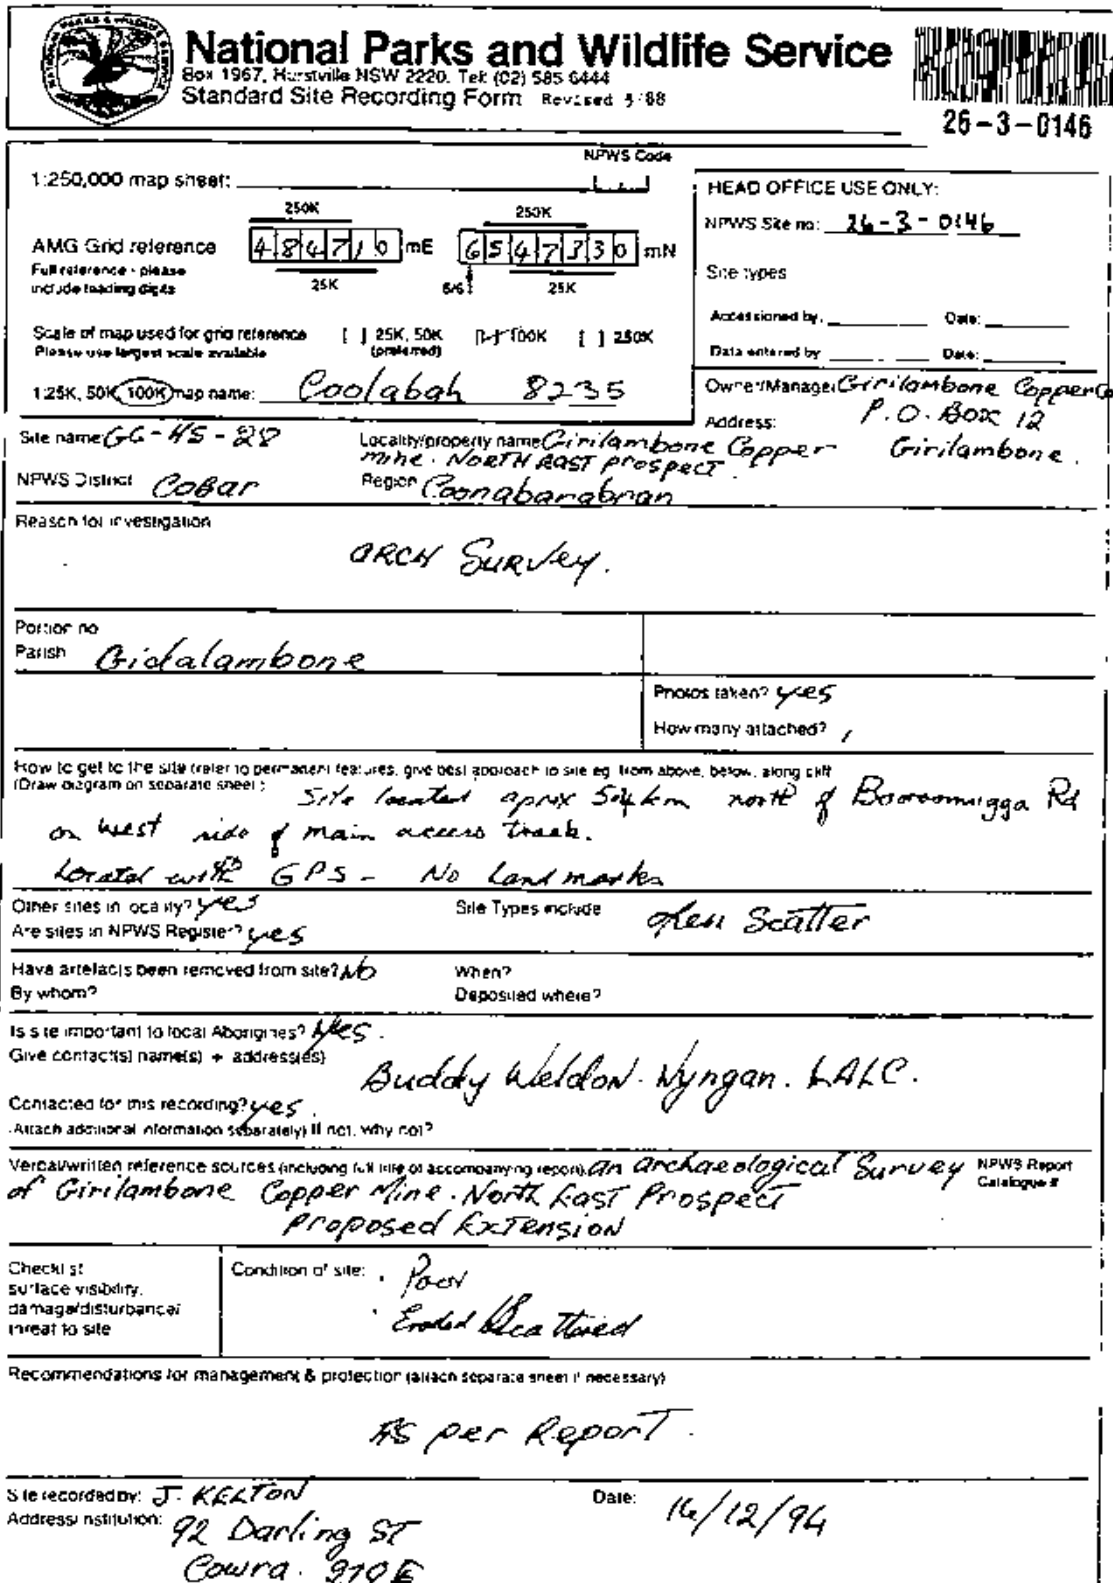 National Parks and Wildlife Service
Box 1967, Hurstville NSW 2220. Tel: (02) 585 6444
Standard Site Recording Form Revised 5/88
26-3-0146
NPWS Code
1:250,000 map sheet:
HEAD OFFICE USE ONLY:
NPWS Site no: 26-3-0146
250K 250K
AMG Grid reference 484710 mE 6547330 mN
Full reference - please
include leading digits
25K 6/6 25K
Site types
Accessioned by, Date:
Scale of map used for grid reference [ ] 25K, 50K 100K [ ] 250K
Please use largest scale available (preferred)
Data entered by Date:
1:25K, 50K, 100K map name: Coolabah 8235
Owner/Manager Girilambone Copper Co
Address: P.O. Box 12
Girilambone.
Site name GG-HS-28
Locality/property name Girilambone Copper
mine. NORTH EAST prospect.
NPWS District Cobar
Region Coonabarabran
Reason for investigation
ARCH SURVEY.
Portion no
Parish Gidalambone
Photos taken? yes
How many attached?
How to get to the site (refer to permanent features, give best approach to site eg. from above, below, along cliff
(Draw diagram on separate sheet)
Site located aprox km north of Booroomugga Rd
on west side of main access track.
Located with GPS - No Landmarks
Other sites in locality? yes
Site Types include Open Scatter
Are sites in NPWS Register? yes
Have artefacts been removed from site? No When?
By whom? Deposited where?
Is site important to local Aborigines? Yes.
Give contact(s) name(s) + address(es)
Buddy Weldon. Nyngan. LALC.
Contacted for this recording? yes.
(Attach additional information separately) If not, why not?
Verbal/written reference sources (including full title of accompanying report) an archaeological Survey
of Girilambone Copper Mine. North East Prospect
Proposed Extension
NPWS Report
Catalogue #
Checklist
surface visibility,
damage/disturbance/
threat to site
Condition of site: Poor
Eroded Scattered
Recommendations for management & protection (attach separate sheet if necessary)
As per Report.
Site recorded by: J. KELTON
Date: 16/12/94
Address/institution: 92 Darling ST
Cowra.